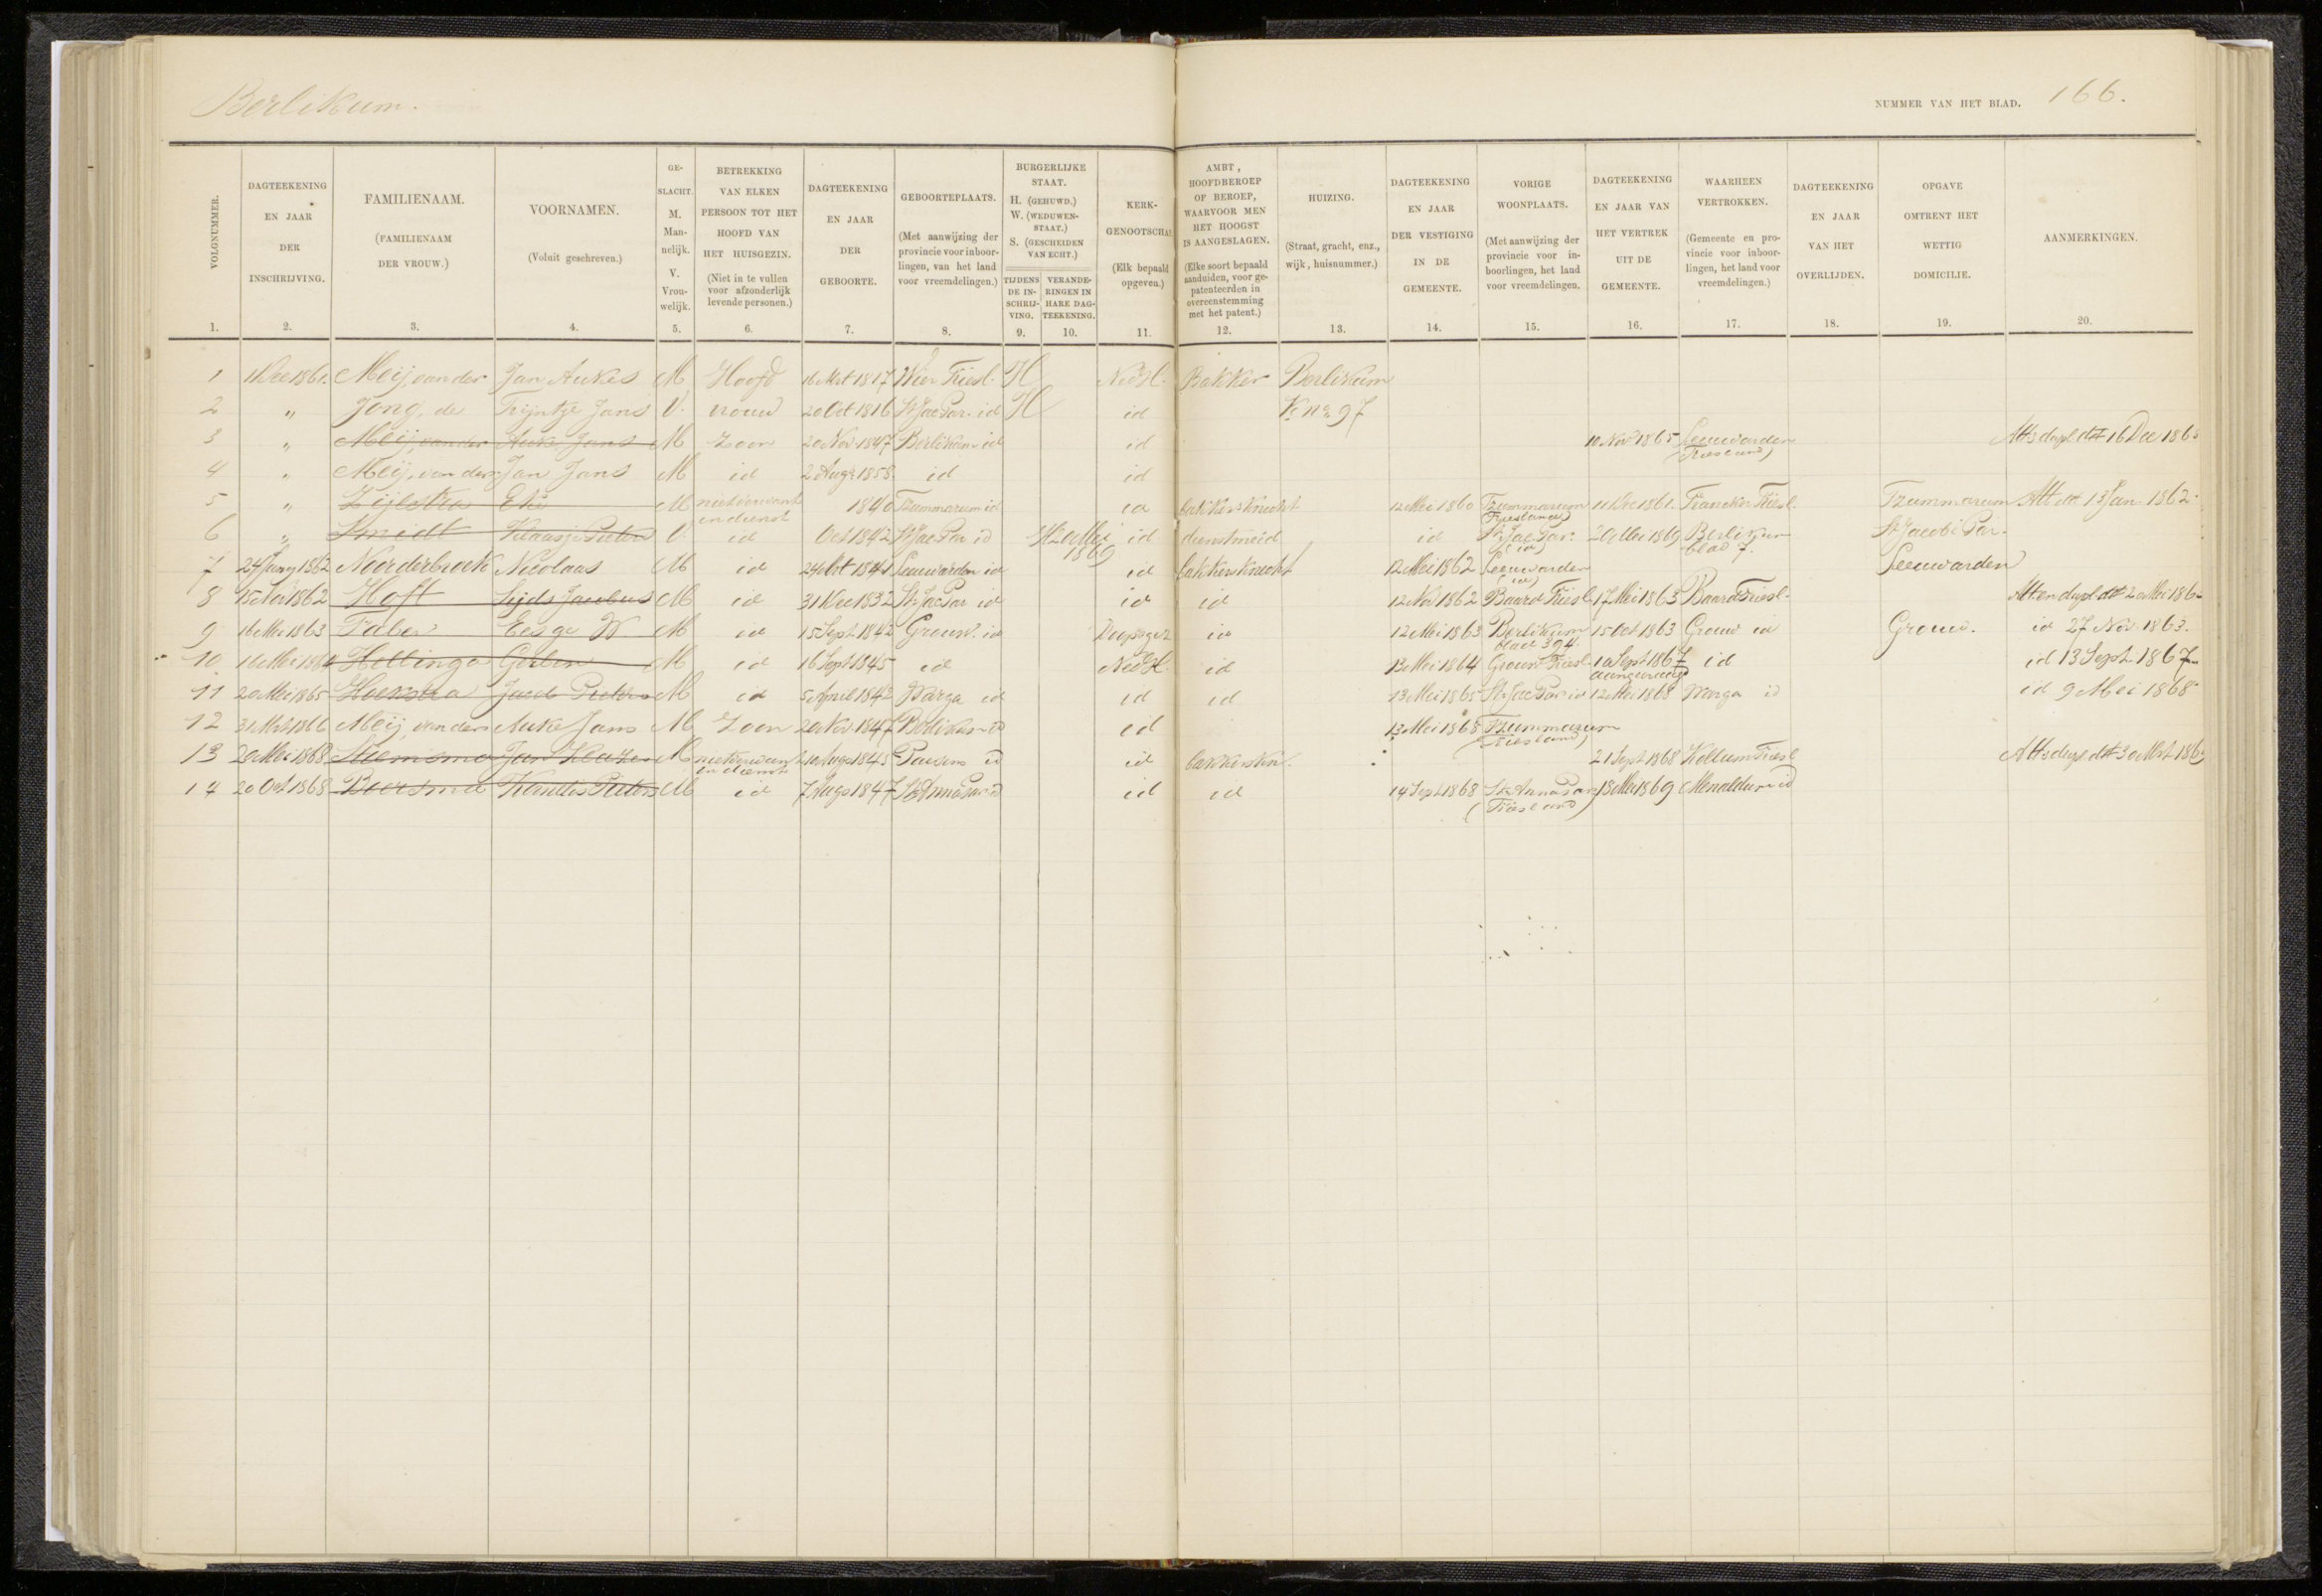 Berlikum.
NUMMER VAN HET BLAD. 166.
VOLGNUMMER. 1.
DAGTEEKENING EN JAAR DER INSCHRIJVING. 2.
FAMILIENAAM. (FAMILIENAAM DER VROUW.) 3.
VOORNAMEN. (Voluit geschreven.) 4.
GE-SLACHT. M. Man-nelijk. V. Vrou-welijk. 5.
BETREKKING VAN ELKEN PERSOON TOT HET HOOFD VAN HET HUISGEZIN. (Niet in te vullen voor afzonderlijk levende personen.) 6.
DAGTEEKENING EN JAAR DER GEBOORTE. 7.
GEBOORTEPLAATS. (Met aanwijzing der provincie voor inboor-lingen, van het land voor vreemdelingen.) 8.
BURGERLIJKE STAAT. H. (GEHUWD.) W. (WEDUWEN-STAAT.) S. (GESCHEIDEN VAN ECHT.)
TIJDENS DE IN-SCHRIJ-VING. 9.
VERANDE-RINGEN IN HARE DAG-TEEKENING. 10.
KERK-GENOOTSCHA (Elk bepaald opgeven.) 11.
AMBT, HOOFDBEROEP OF BEROEP, WAARVOOR MEN HET HOOGST IS AANGESLAGEN. (Elke soort bepaald aanduiden, voor ge-patenteerden in overeenstemming met het patent.) 12.
HUIZING. (Straat, gracht, enz., wijk, huisnummer.) 13.
DAGTEEKENING EN JAAR DER VESTIGING IN DE GEMEENTE. 14.
VORIGE WOONPLAATS. (Met aanwijzing der provincie voor in-boorlingen, het land voor vreemdelingen. 15.
DAGTEEKENING EN JAAR VAN HET VERTREK UIT DE GEMEENTE. 16.
WAARHEEN VERTROKKEN. (Gemeente en pro-vincie voor inboor-lingen, het land voor vreemdelingen.) 17.
DAGTEEKENING EN JAAR VAN HET OVERLIJDEN. 18.
OPGAVE OMTRENT HET WETTIG DOMICILIE. 19.
AANMERKINGEN. 20.
1 1 Dec 1861. Meij, van der Jan Aukes M Hoofd 16 Mrt 1817 Wier Friesl. H Ned H. Bakker Berlikum
2 " Jong, de Trijntje Jans V. vrouw 20 Oct 1816 St Jac Par. id H id K no 97
3 " Meij, van der Auke Jans M Zoon 20 Nov 1847 Berlikum id id 10 Nov 1865 Leeuwarden (Friesland)
4 " Meij, van der Jan Jans M id 2 Aug 1858 id id
5 " Zijlstra M niet verwant in dienst 1840 Tzummarum id id bakkersknecht 12 Mei 1860 Tzummarum (Friesland) 11 Dec 1861. Franeker Friesl. Tzummarum Att dd 13 Jan. 1862.
6 " Smidt Klaasje Pieters V. id Oct 1842 St Jac Par id H 20 Mei 1869 id dienstmeid id St Jac Par. (id) 20 Mei 1869 Berlikum blad 7. St Jacobi Par.
7 1862 Noorderbroek Nicolaas M id 1841 Leeuwarden id id bakkersknecht 12 Mei 1862 Leeuwarden (id) Leeuwarden
8 15 Nov 1862 Hoft Sijds Jacobus M id 31 Dec 1832 St Jac Par id id id 12 Nov 1862 Baard Friesl 17 Mei 1863 Baard Friesl.
9 16 Mei 1863 Faber Eesge W. M id 15 Sept 1842 Grouw. id Doopsgez id 12 Mei 1863 Berlikum blad 394. 15 Oct 1863 Grouw id Grouw. id 27 Nov. 1863.
10 16 Mei 1864 Hellinga Gerben M id 16 Sept 1845 id Ned H. id 13 Mei 1864 Grouw Friesl. 10 Sept 1867 id id 13 Sept 1867
11 20 Mei 1865 Hoekstra Jacob Pieters M id 5 April 1842 Warga id id id 13 Mei 1865 St Jac Par id 12 Mei 1868 Warga id id 9 Mei 1868
12 31 Mrt 1866 Meij, van der Auke Jans M Zoon 20 Nov. 1847 Berlikum id id 13 Mei 1868 Tzummarum (Friesland)
13 20 Mei 1868 Jan M niet verwant in dienst 10 Aug 1845 Paesens id id bakkerskn. 21 Sept 1868 Kollum Friesl
14 20 Oct 1868 Boersma Pieters M id 7 Aug 1847 St Anna Par id id id 14 Sept 1868 St Anna Par (Friesland) 18 Mei 1869 Menaldum id